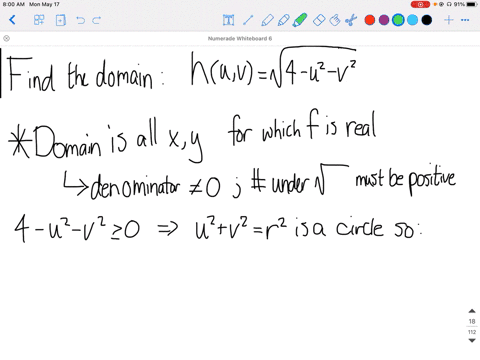 8:00 AM Mon May 17
91%
Numerade Whiteboard 6
Find the domain: h(u,v)=√4-u²-v²
*Domain is all x,y for which f is real
↳denominator ≠0 ; # under √ must be positive
4-u²-v²≥0 ⇒ u²+v²=r² is a circle so:
18
112